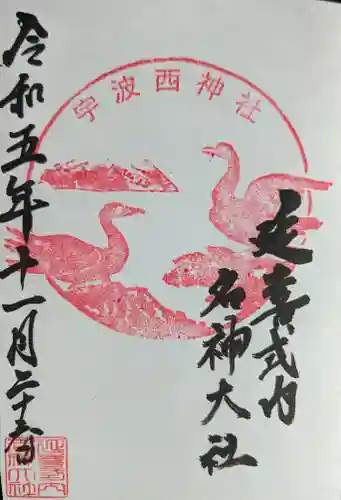 宇波西神社
延喜式内
名神大社
令和五年十一月二十六日